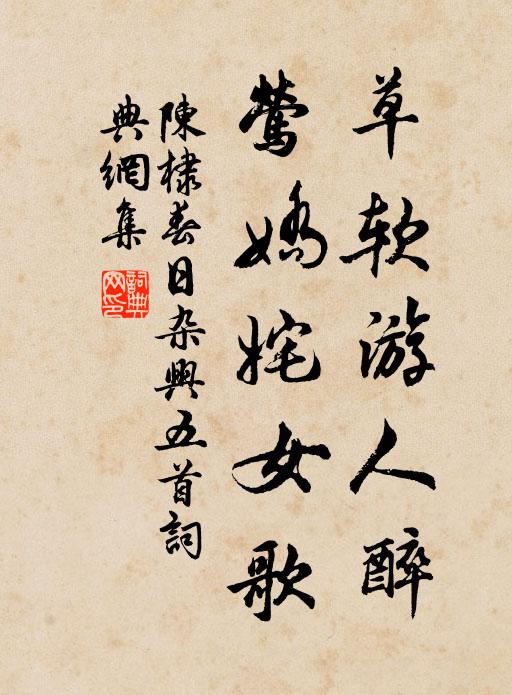 草软游人醉
莺娇姹女歌
陳棣春日杂興五首詞
典網集
詞典
网印